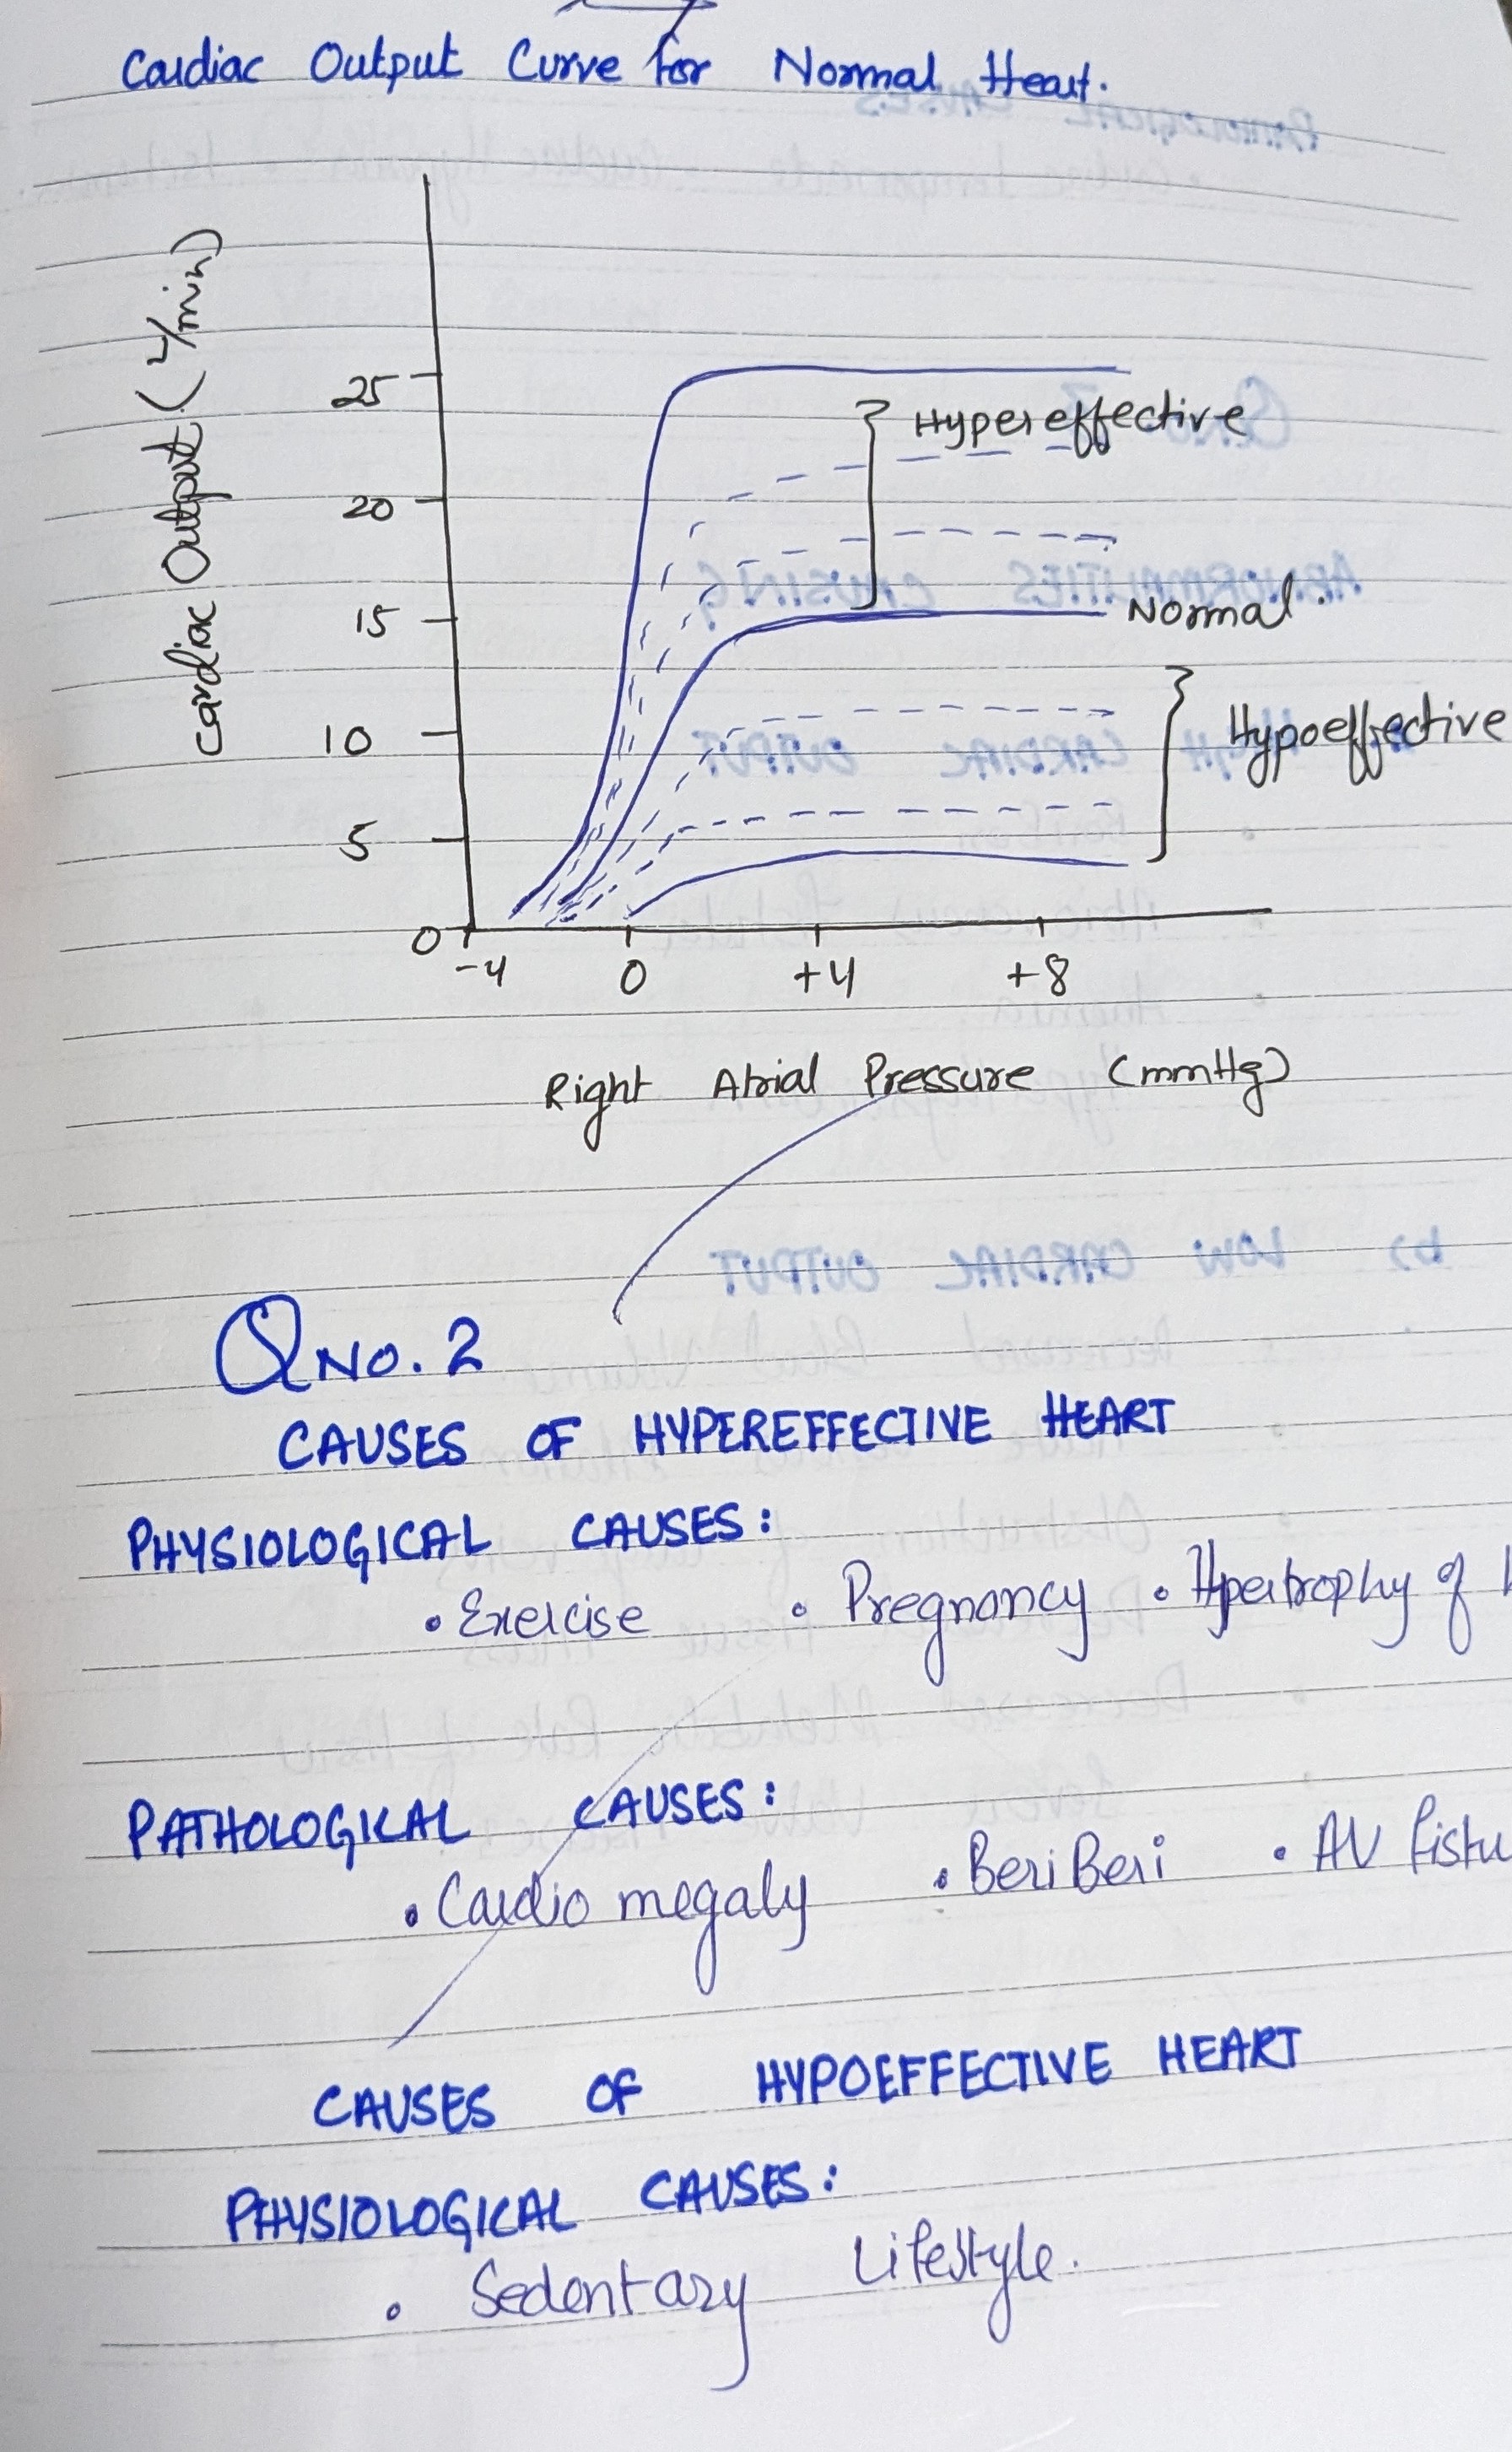 Cardiac Output Curve for Normal Heart.
Cardiac Output (L/min)
25
Hypereffective
20
15
Normal.
10
Hypoeffective
5
0
-4 0 +4 +8
Right Atrial Pressure (mmHg)
QNO. 2
CAUSES OF HYPEREFFECTIVE HEART
PHYSIOLOGICAL CAUSES:
• Exercise • Pregnancy • Hpertrophy of
PATHOLOGICAL CAUSES:
• Cardio megaly • Beri Beri • AV fistu
CAUSES OF HYPOEFFECTIVE HEART
PHYSIOLOGICAL CAUSES:
• Sedentary Lifestyle.